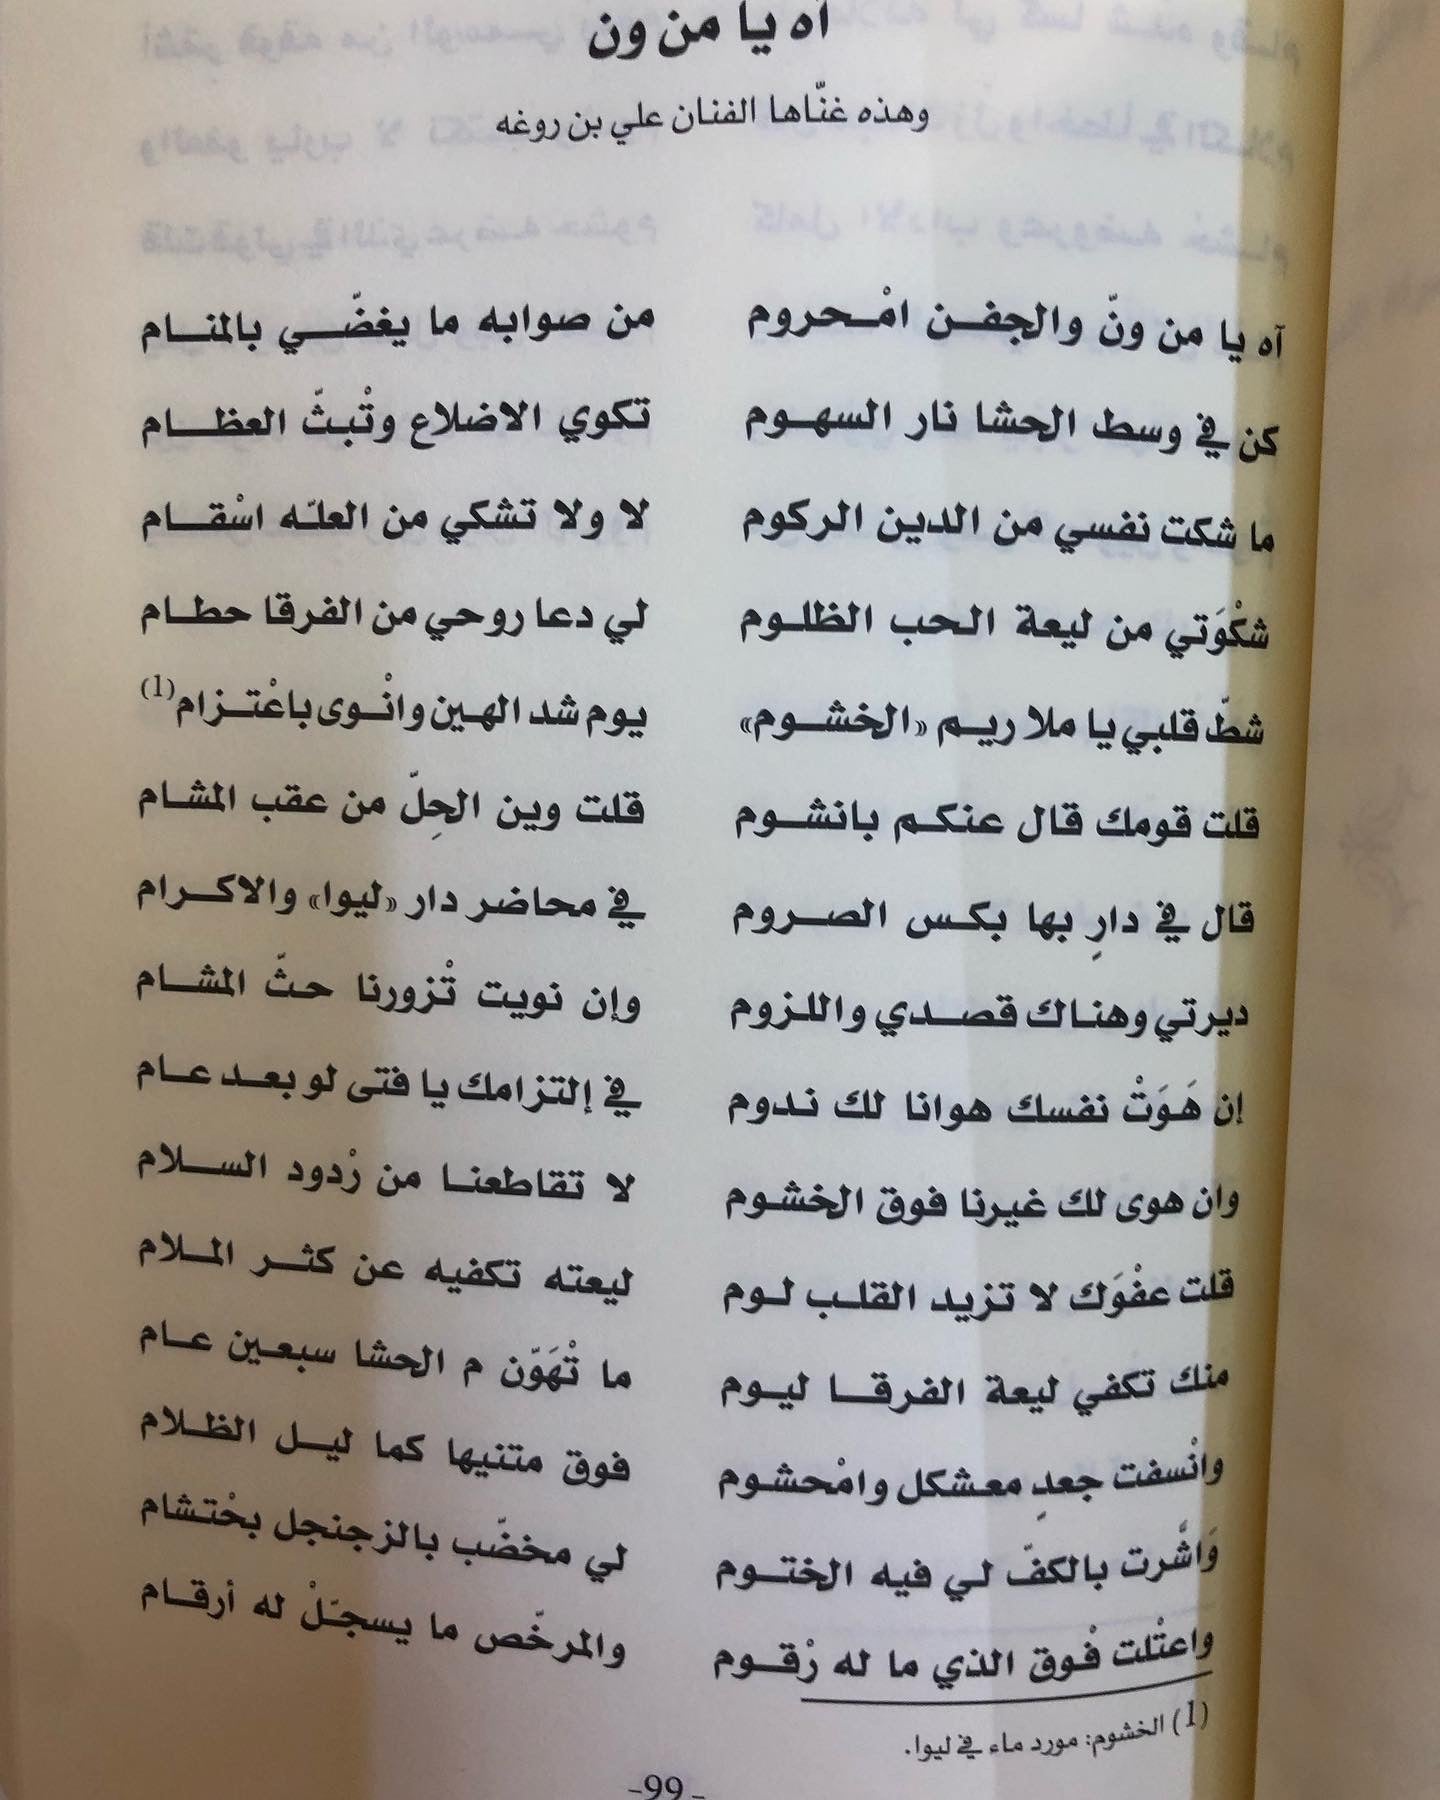 آه يا من ون
وهذه غنّاها الفنان علي بن روغه
آه يا من ونّ والجفن امْحروم من صوابه ما يغضّي بالمنام
كن في وسط الحشا نار السهوم تكوي الاضلاع وتْبثّ العظام
ما شكت نفسي من الدين الركوم لا ولا تشكي من العلّه اسْقام
شكْوَتي من ليعة الحب الظلوم لي دعا روحي من الفرقا حطام
شطّ قلبي يا ملا ريم «الخشوم» يوم شد الهين وانْوى باعْتزام(1)
قلت قومك قال عنكم بانشوم قلت وين الحِلّ من عقب المشام
قال في دارِ بها بكس الصروم في محاضر دار «ليوا» والاكرام
ديرتي وهناك قصدي واللزوم وإن نويت تْزورنا حثّ المشام
إن هَوَتْ نفسك هوانا لك ندوم في إلتزامك يا فتى لو بعد عام
وان هوى لك غيرنا فوق الخشوم لا تقاطعنا من رْدود السلام
قلت عفْوَك لا تزيد القلب لوم ليعته تكفيه عن كثر الملام
منك تكفي ليعة الفرقا ليوم ما تْهَوّن م الحشا سبعين عام
وانْسفت جعدِ معشكل وامْحشوم فوق متنيها كما ليل الظلام
وَاشّرت بالكفّ لي فيه الختوم لي مخضّب بالزجنجل بحْتشام
واعتْلت فْوق الذي ما له رْقوم والمرخّص ما يسجّلْ له أرقام
(1) الخشوم: مورد ماء في ليوا.
-99-